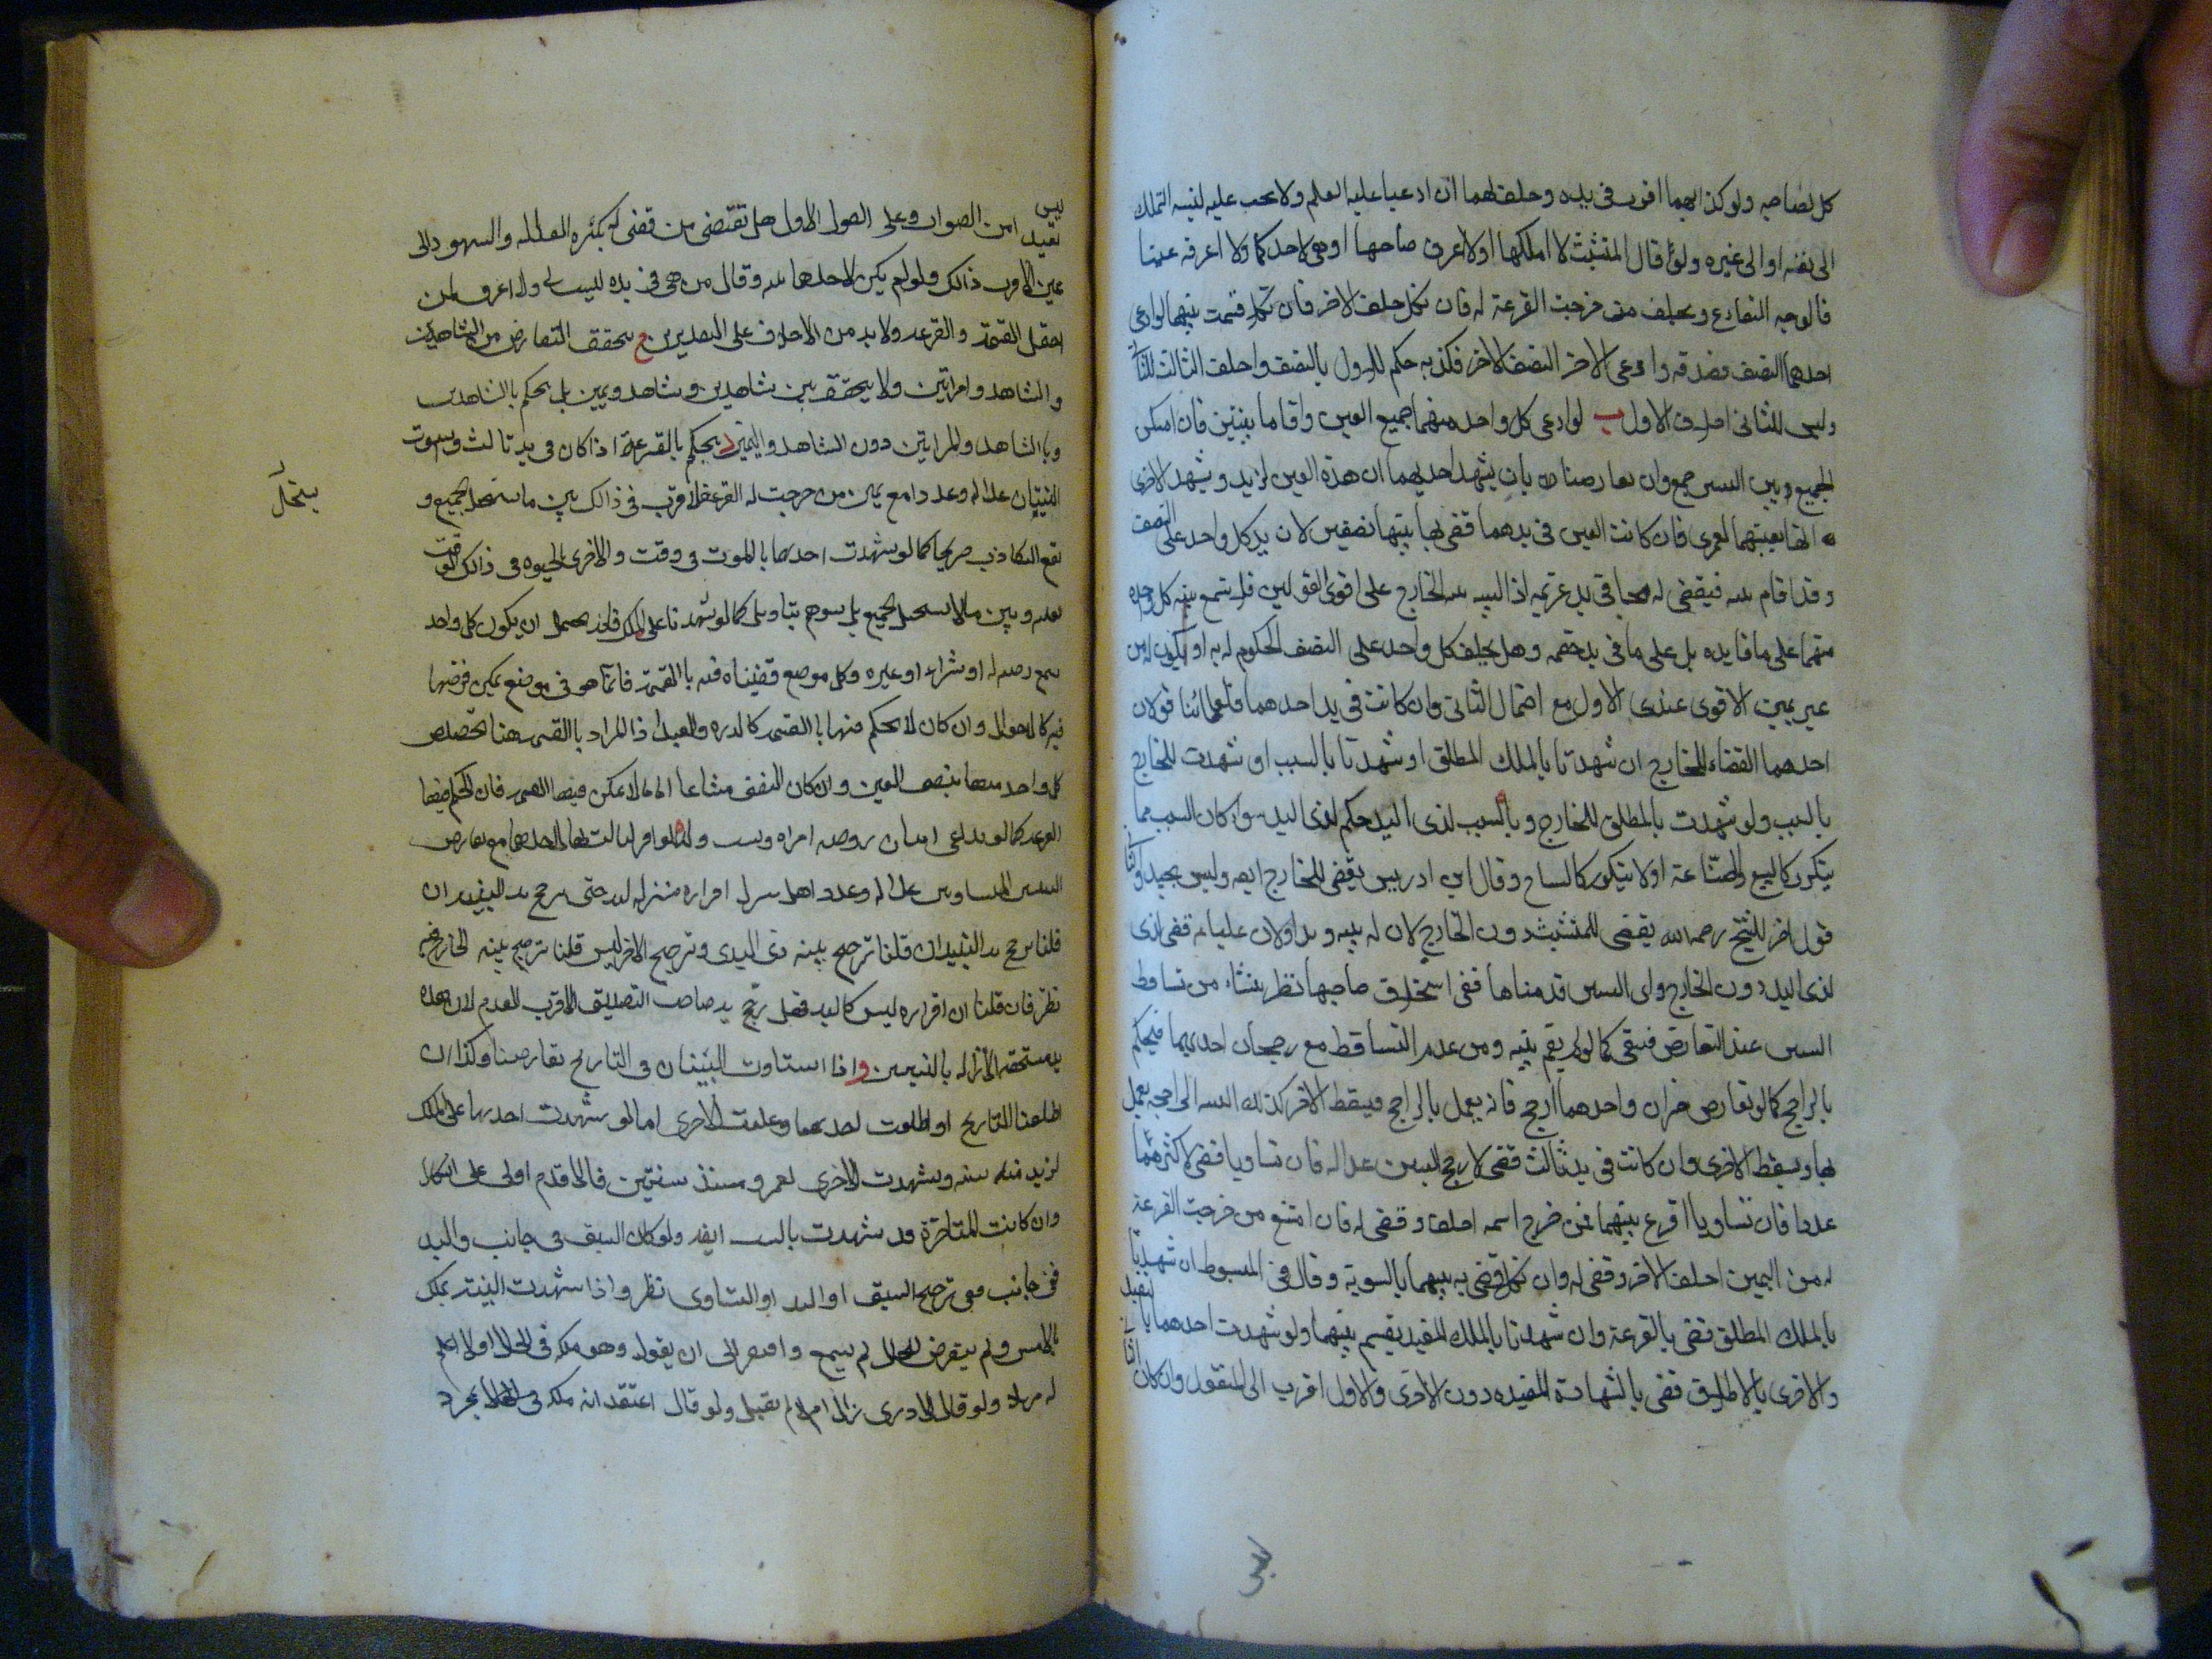 كل لصاحبه ولو كذبهما اقر فى يده وحلف لهما ان ادعيا عليه العلم ولا يجب عليه لنسبة التملك
الى نفسه او الى غيره ولو قال المتشبث لا املكها او لا اعرف صاحبها او هى لاحدكما ولا اعرفه عينا
فالوجه التقارع ويحلف من خرجت القرعة له فان نكل حلف الاخر فان نكلا قسمت بينهما ولو ادعى
احدهما النصف فصدقه وادعى الاخر النصف الاخر فكذبه حكم للاول بالنصف واحلف الثالث للثانى
وليس للثانى احلاف الاول ب لو ادعى كل واحد منهما جميع العين واقاما بينتين فان امكن
الجمع بين البينتين جمع وان تعارضتا بان يشهد احديهما ان هذه العين لزيد ويشهد الاخرى
انها بعينها لعمرو فان كانت العين فى يدهما قضى بها بينهما نصفين لان يد كل واحد على النصف
وقد اقام بينة فيقضى له بما فى يد غريمه اذ البينة بينة الخارج على اقوى القولين فلا يسمع بينة كل واحد
منهما على ما فى يده بل على ما فى يد خصمه وهل يحلف كل واحد على النصف المحكوم له به او يكون له من
غير يمين الاقوى عندى الاول مع احتمال الثانى وان كانت فى يد احدهما فلعلمائنا قولان
احدهما القضاء للخارج ان شهدتا بالملك المطلق او شهدتا بالسبب او شهدت للخارج
بالسبب ولو شهدت بالمطلق للخارج وبالسبب لذى اليد حكم لذى اليد سواء كان السبب مما
يتكرر كالبيع والصناعة او لا يتكرر كالنساج وقال ابن ادريس يقضى للخارج ايضا وليس بجيد والثانى
قول اخر للشيخ رحمه الله يقضى للمتشبث دون الخارج لان له بينة ويدا ولان عليا ع قضى
لذى اليد دون الخارج واى البينتين قدمناها ففى استحلاف صاحبها نظر ينشاء من تساقط
البينتين عند التعارض فبقى كما لو لم يقم بينة ومن عدم التساقط مع رجحان احديهما فيحكم
بالراجح كما لو تعارض خبران واحدهما ارجح فانه يعمل بالراجح ويسقط الاخر كذلك البينة الراجحة يعمل
بها ويسقط الاخرى وان كانت فى يد ثالث قضى لارجح البينتين عدالة فان تساويا قضى لاكثرهما
عددا فان تساويا اقرع بينهما فمن خرج اسمه احلف وقضى له فان امتنع من خرجت القرعة
له من اليمين احلف الاخر وقضى له وان نكلا قضى به بينهما بالسوية وقال فى المبسوط ان شهدتا
بالملك المطلق قضى بالقرعة وان شهدتا بالملك المقيد يقسم بينهما ولو شهدت احدهما بالتقييد
والاخرى بالاطلاق قضى بالشهادة المقيده دون الاخرى والاول اقرب الى المنقول وان كان الثانى
ليس بعيدا من الصواب وعلى القول الاول هل تقتضى من قضى له بكثرة العدالة والشهود والى
عين الاقرب ذالك ولو لم يكن لاحدهما بينة وقال من هى فى يده ليست لى ولا اعرف لمن
احتمل القسمة والقرعة ولا بد من الاحلاف على التقديرين ج يتحقق التعارض من الشاهدين
والشاهد وامراتين ولا يتحقق بين شاهدين وشاهد ويمين بل يحكم بالشاهدين
وبالشاهد والمراتين دون الشاهد واليمين د يحكم بالقرعة اذا كان فى يد ثالث وتساوت
البينتان عدالة وعددا مع يمين من خرجت له القرعة ولا فرق فى ذالك بين ما يستحيل الجميع و
يقع التكاذب صريحا كما لو شهدت احدهما بالموت فى وقت والاخرى بالحيوه فى ذالك الوقت
بعينه وبين ما لا يستحيل الجميع بل يتوهم بتاويل كما لو شهدتا على الملك فانه يحتمل ان يكون كل واحد
سمع وصية له او شراء او غيره وكل موضع قضيناه فيه بالقسمة فانما هو فى موضع يمكن فرضها
فيه كالاموال وان كان لا يحكم منها بالقسمة كالدرة والعبد اذ المراد بالقسمة هنا تخصيص
كل واحد منهما بنصف العين وان كان النصف مشاعا اما ما لا يمكن فيها القسمة فان الحكم فيها
القرعة كما لو تداعى اثنان زوجية امراة ونسب ولد ه لو اقر الثالث بها لاحدهما مع تعارض
البينتين المتساويتين عدالة وعددا هل ينزل اقراره منزلة اليد حتى يرجح به البينة ان
قلنا يرجح به البينة ان قلنا ترجح بينة ذى اليد وترجح الاخر ليس قلنا ترجح بينة الخارج فيه
نظر فان قلنا ان اقراره ليس كاليد فهل يرجح يد صاحب التصديق الاقرب العدم لان هذه
يد مستحقة الازالة بالبينتين و اذا تساوت البينتان فى التاريخ تعارضتا وكذا ان
اطلقتا التاريخ او اطلقت احدهما وعلقت الاخرى اما لو شهدت احدهما على الملك
لزيد منذ سنة وشهدت الاخرى لعمرو منذ سنتين فالاقدم اولى على اشكال
وان كانت المتاخرة قد شهدت باليد ايضا ولو كان السبق فى جانب واليد
فى جانب ففى ترجيح السبق او اليد او التساوى نظر واذا شهدت البينة بملك
بالامس ولم يتعرض للحال لم يسمع وافتقر الى ان يقول وهو ملكه فى الحال او لا اعلم
له مزيلا ولو قال لا ادرى زال ام لا لم يقبل ولو قال اعتقد انه ملكه فى الحال بمجرد
يستحيل